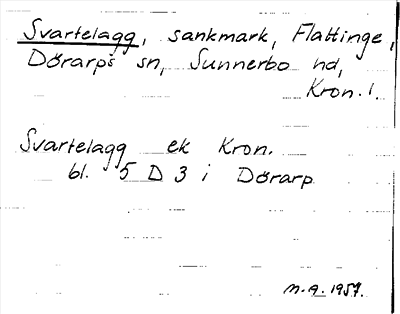 Svartelagg, sankmark, Flattinge,
Dörarps sn, Sunnerbo hd,
Kron. l.
Svartelagg ek Kron.
bl. 5 D 3 i Dörarp
M.A. 1957.